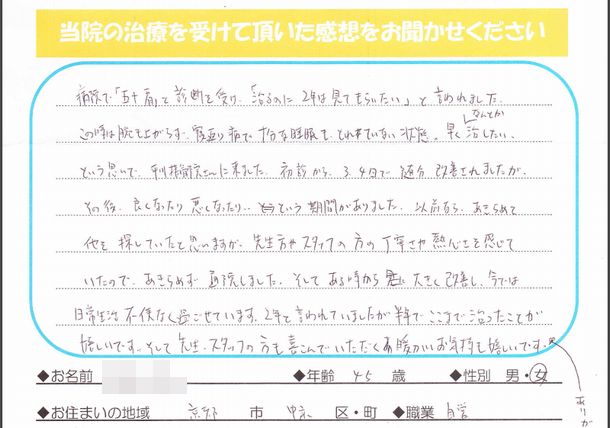 当院の治療を受けて頂いた感想をお聞かせください
病院で「五十肩」と診断を受け、「治るのに2年は見てもらいたい」と言われました。
なんとか
この時は腕も上がらず、寝返り痛で十分な睡眠もとれていない状態。早く治したい、
という思いで、来ました。初診から、3、4日で随分改善されましたが、
その後、良くなったり悪くなったり、という期間がありました。以前なら、あきらめて
他を探していたと思いますが、先生方やスタッフの方の丁寧さや熱心さを感じて
いたので、あきらめず通院しました。そしてある時から大きく改善し、今では
日常生活不便なく過ごせています。2年と言われていましたが半年でここまで治ったことが
嬉しいです。そして先生、スタッフの方も喜こんでいただくお暖かいお気持も嬉しいです。
◆お名前 ◆年齢 45 歳 ◆性別 男・女
◆お住まいの地域 京都 市 中京 区・町 ◆職業 自営
ありが